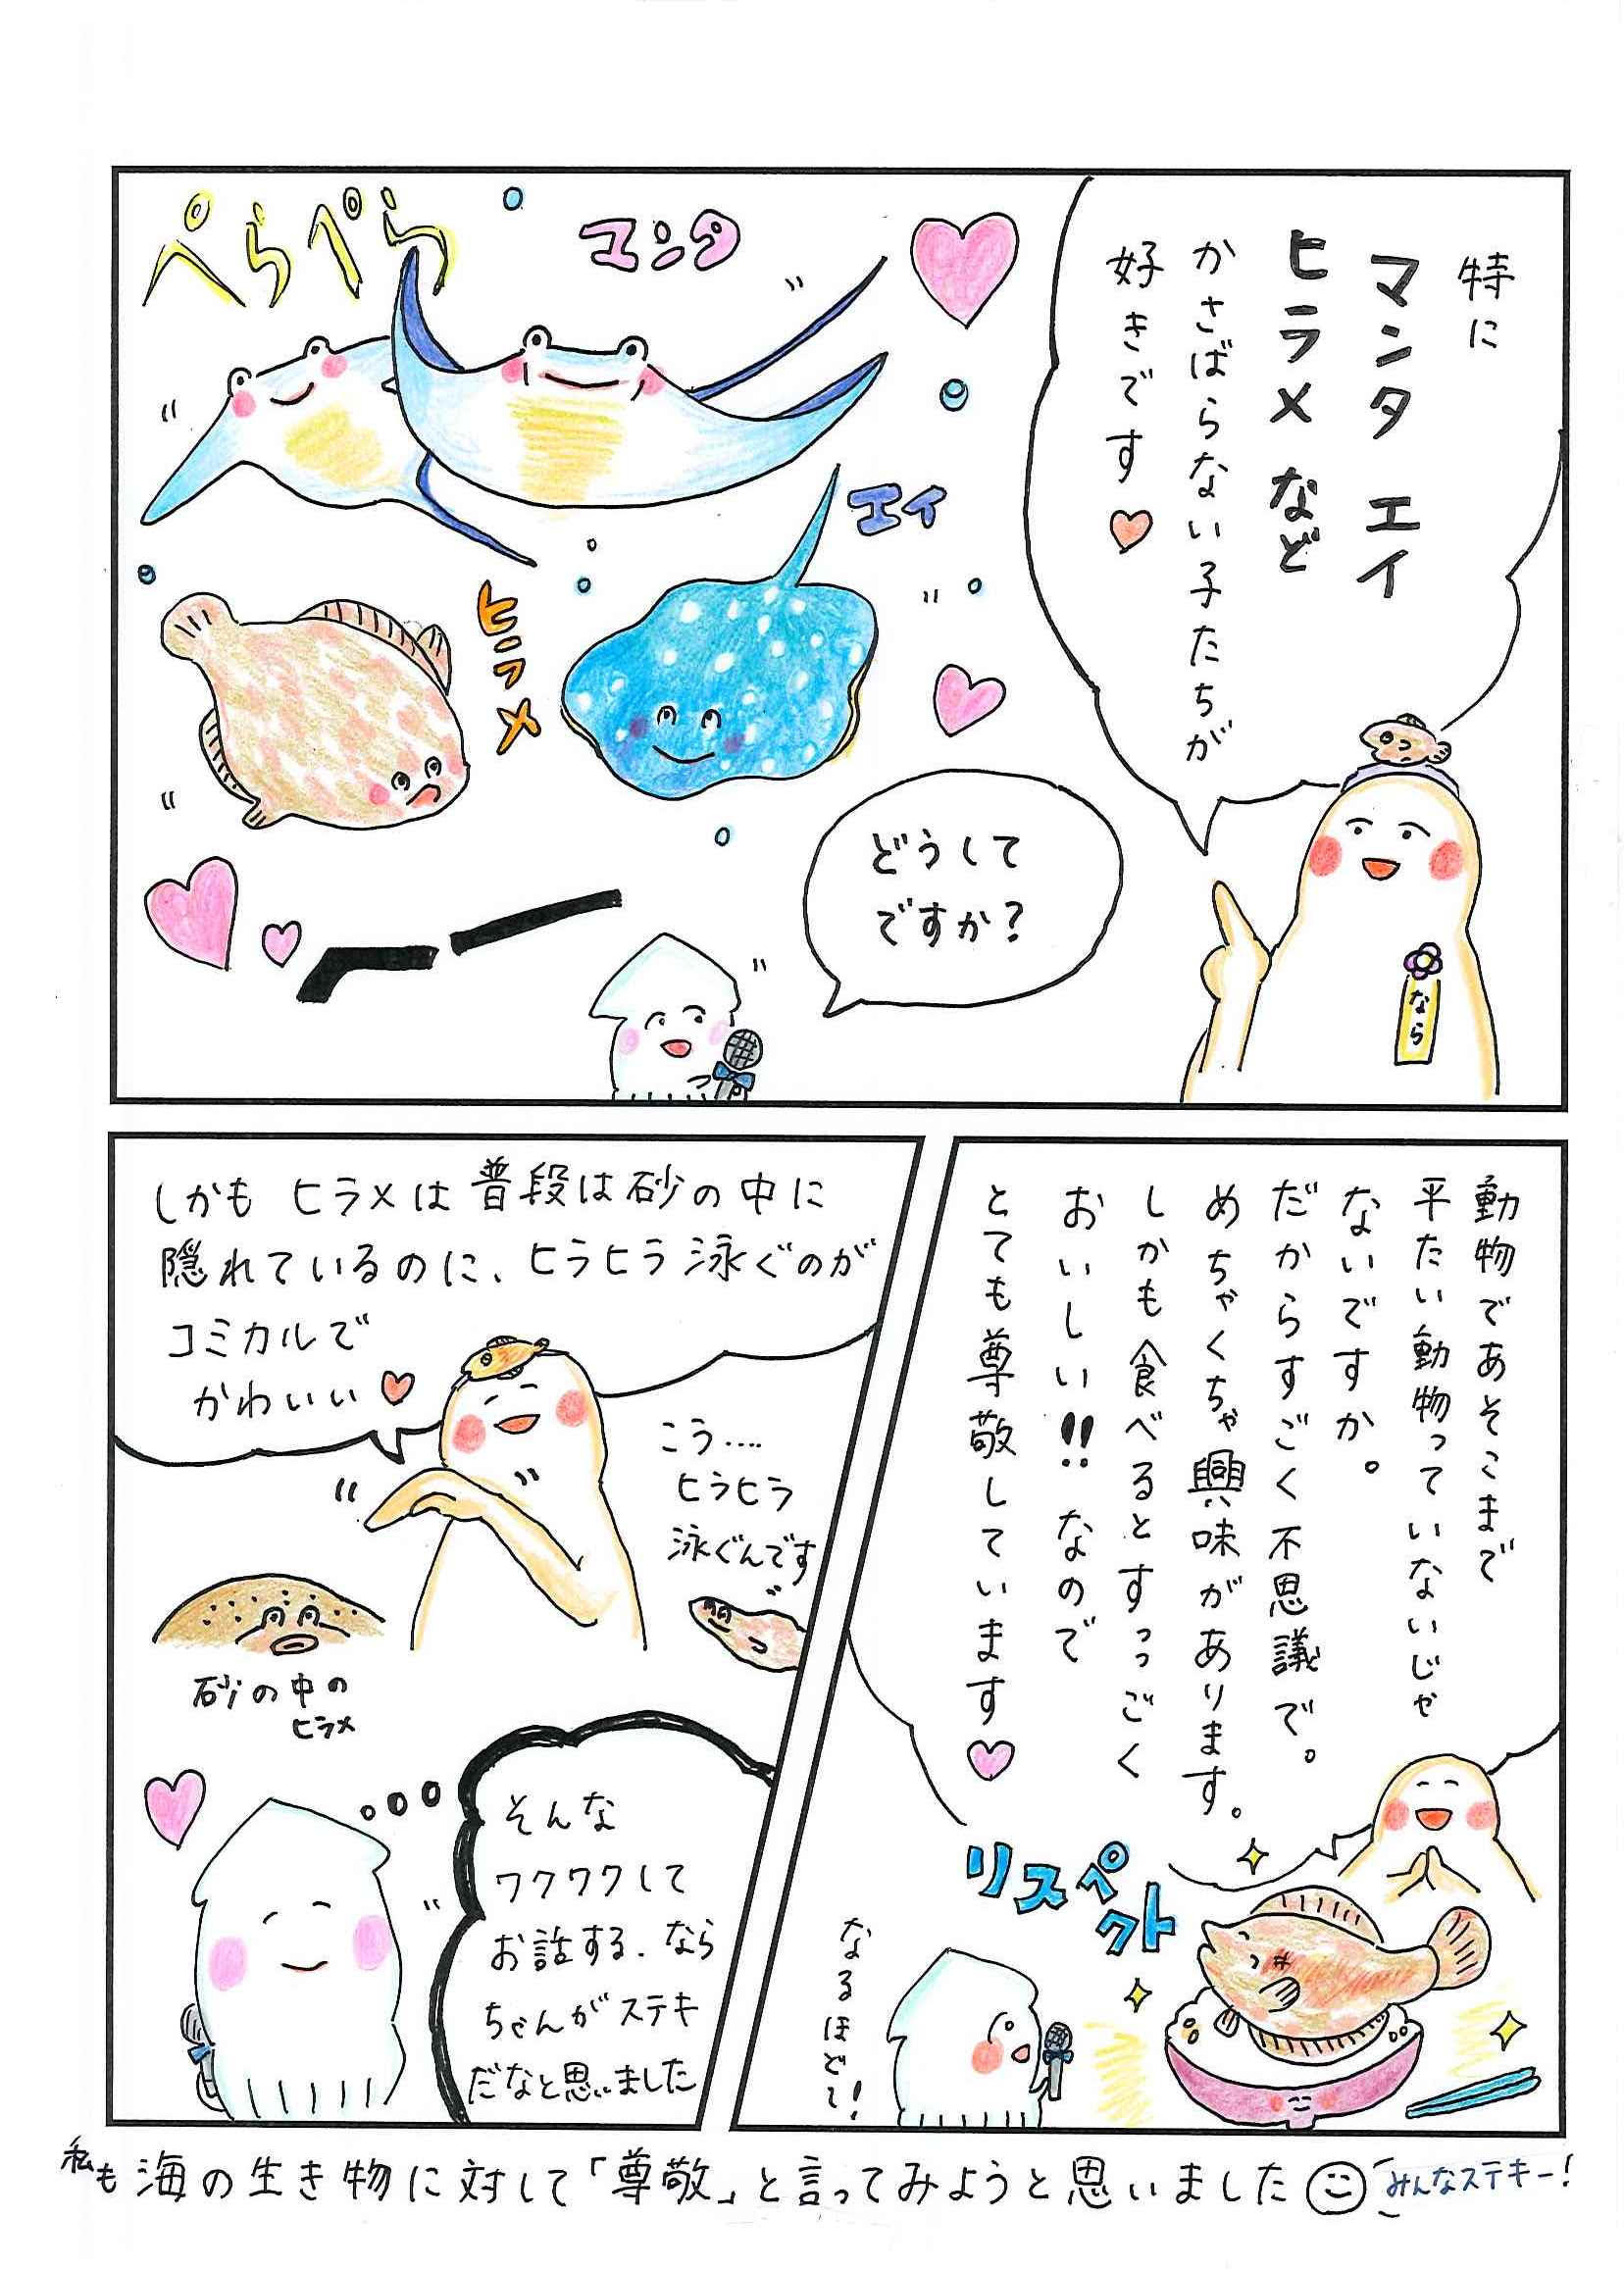 特に
マンタ エイ
ヒラメ など
かさばらない子たちが
好きです
ぺらぺら
マンタ
エイ
ヒラメ
どうして
ですか?
なら
動物であそこまで
平たい動物っていないじゃ
ないですか。
だからすごく不思議で。
めちゃくちゃ興味があります。
しかも食べるとすっっごく
おいしい!! なので
とても尊敬しています
リスペクト
なるほどて!
しかもヒラメは普段は砂の中に
隠れているのに、ヒラヒラ泳ぐのが
コミカルで
かわいい
こう….
ヒラヒラ
泳ぐんです
砂の中の
ヒラメ
そんな
ワクワクして
お話する、なら
ちゃんがステキ
だなと思いました
私も海の生き物に対して「尊敬」と言ってみようと思いました
みんなステキー!